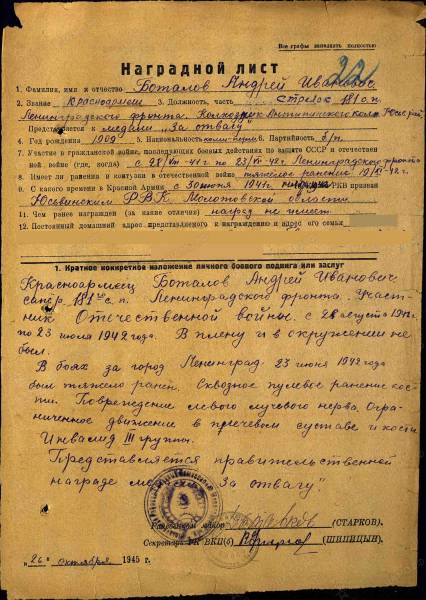 Все графы заполнять полностью
22
Наградной лист
1. Фамилия, имя и отчество Боталов Андрей Иванович
2. Звание красноармеец 3. Должность, часть стрелок 181 с.п.
Ленинградского фронта. Колхозник колх.
Представляется к медали "За отвагу"
4. Год рождения 1909 5. Национальность коми-перм. 6. Партийность б/п
7. Участие в гражданской войне, последующих боевых действиях по защите СССР и отечествен-
ной войне (где, когда) с 28/VIII-41г по 23/VI-42г. Ленинградского фронта
8. Имеет ли ранения и контузии в отечественной войне тяжёлое ранение -42г.
9. С какого времени в Красной Армии с 30 июня 1941г. РКВ призван
Юсьвинским РВК Молотовской области
11. Чем ранее награжден (за какие отличия) наград не имеет
12. Постоянный домашний адрес представляемого к награждению и адрес его семьи
1. Краткое конкретное изложение личного боевого подвига или заслуг
Красноармеец Боталов Андрей Иванович
181го с.п. Ленинградского фронта. Участ-
ник Отечественной войны с 28 августа 1941г.
по 23 июля 1942 года. В плену и в окружении не
был.
В боях за город Ленинград 23 июня 1942 года
был тяжело ранен. Сквозное пулевое ранение кос-
ти. Повреждение левого лучевого нерва. Огра-
ниченное движение в плечевом суставе и кости
Инвалид III группы.
Представляется правительственной
награде медаль "За отвагу".
(СТАРКОВ).
Секретарь РК ВКП(б) (ШИПИЦЫН).
"26" октября 1945 г.